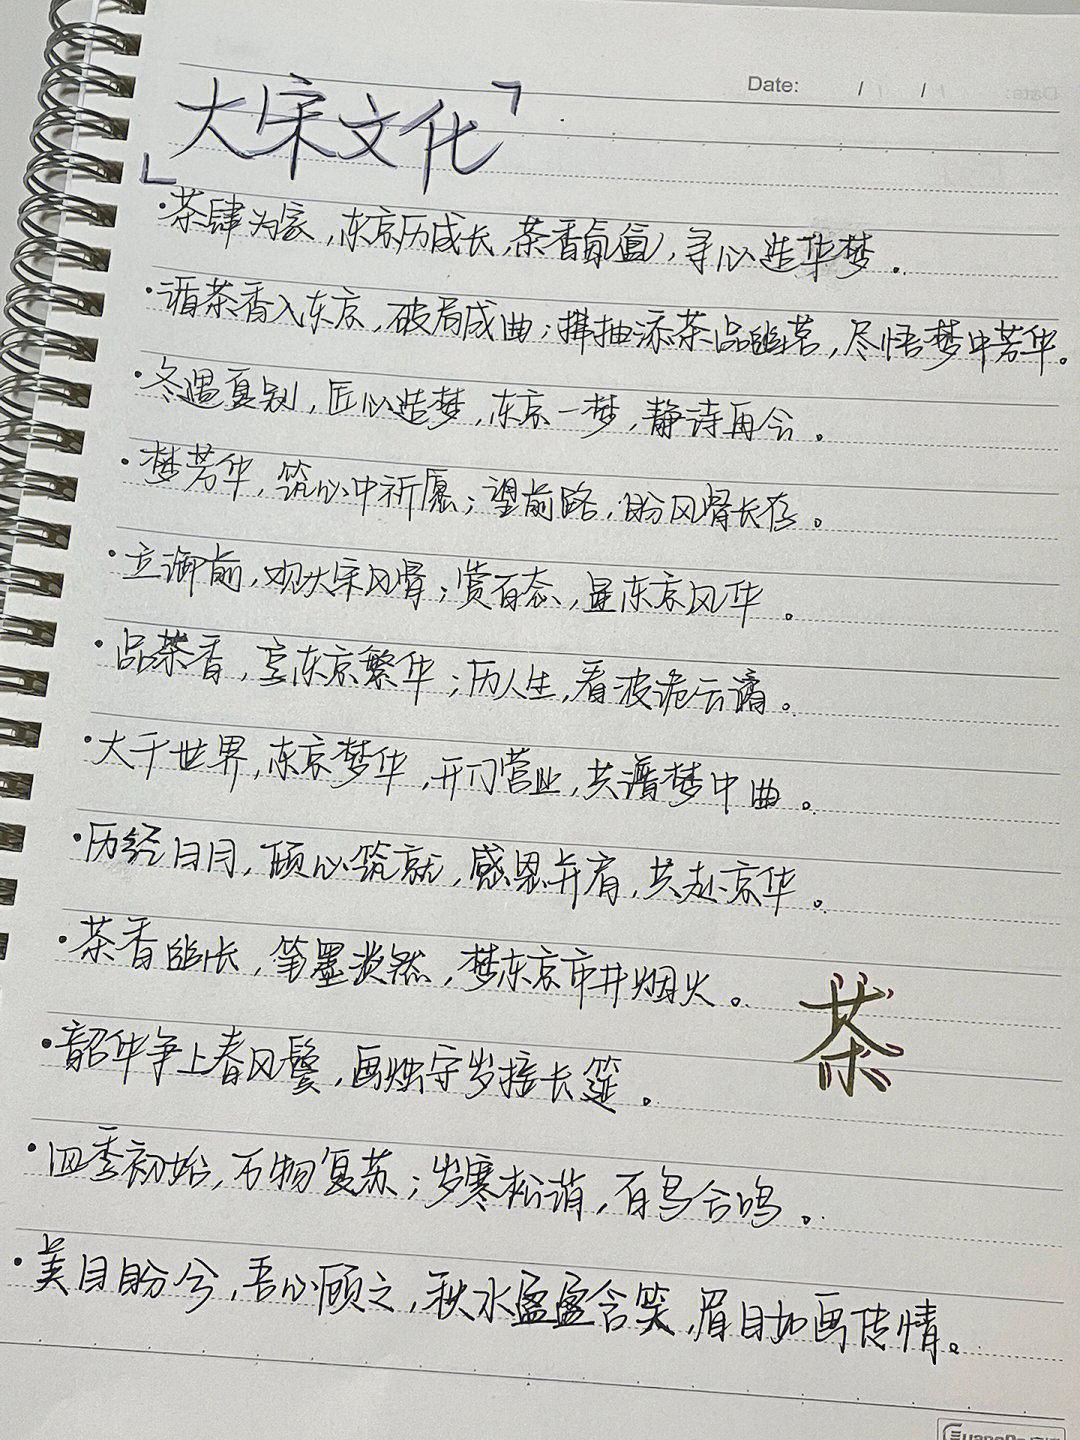 Date: / /
「大宋文化」
·茶肆为家,东京历成长,茶香氤氲,寻心造华梦。
·循茶香入东京,破局成曲;择抽添茶品临茗,尽悟梦中芳华。
·冬遇夏别,匠心造梦,东京一梦,静诗再会。
·梦芳华,筑心中祈愿;望前路,盼风骨长存。
·立御前,观大宋风骨;赏百态,显东京风华。
·品茶香,享东京繁华;历人生,看波诡云谲。
·大千世界,东京梦华,开门营业,共谱梦中曲。
·历经日月,倾心筑就,感恩并肩,共赴京华。
·茶香临怅,笔墨淡然,梦东京市井烟火。
茶
·韶华争上春风鬓,画烛守岁接长筵。
·四季初始,万物复苏;岁寒松谐,百鸟合鸣。
·美目盼兮,吾心顾之,秋水盈盈含笑,眉目如画传情。